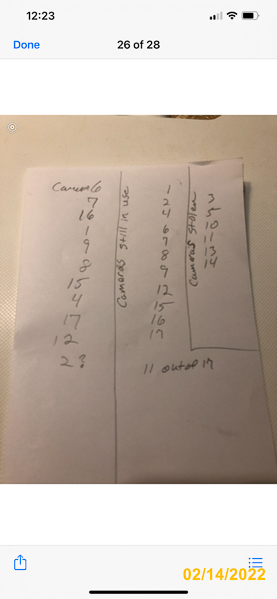 12:23
Done
26 of 28
Camera 6
7
16
1
9
8
15
4
17
12
2?
Cameras still in use
1
2
4
6
7
8
9
12
15
16
17
11 out of 17
Cameras stolen
3
5
10
11
13
14
02/14/2022